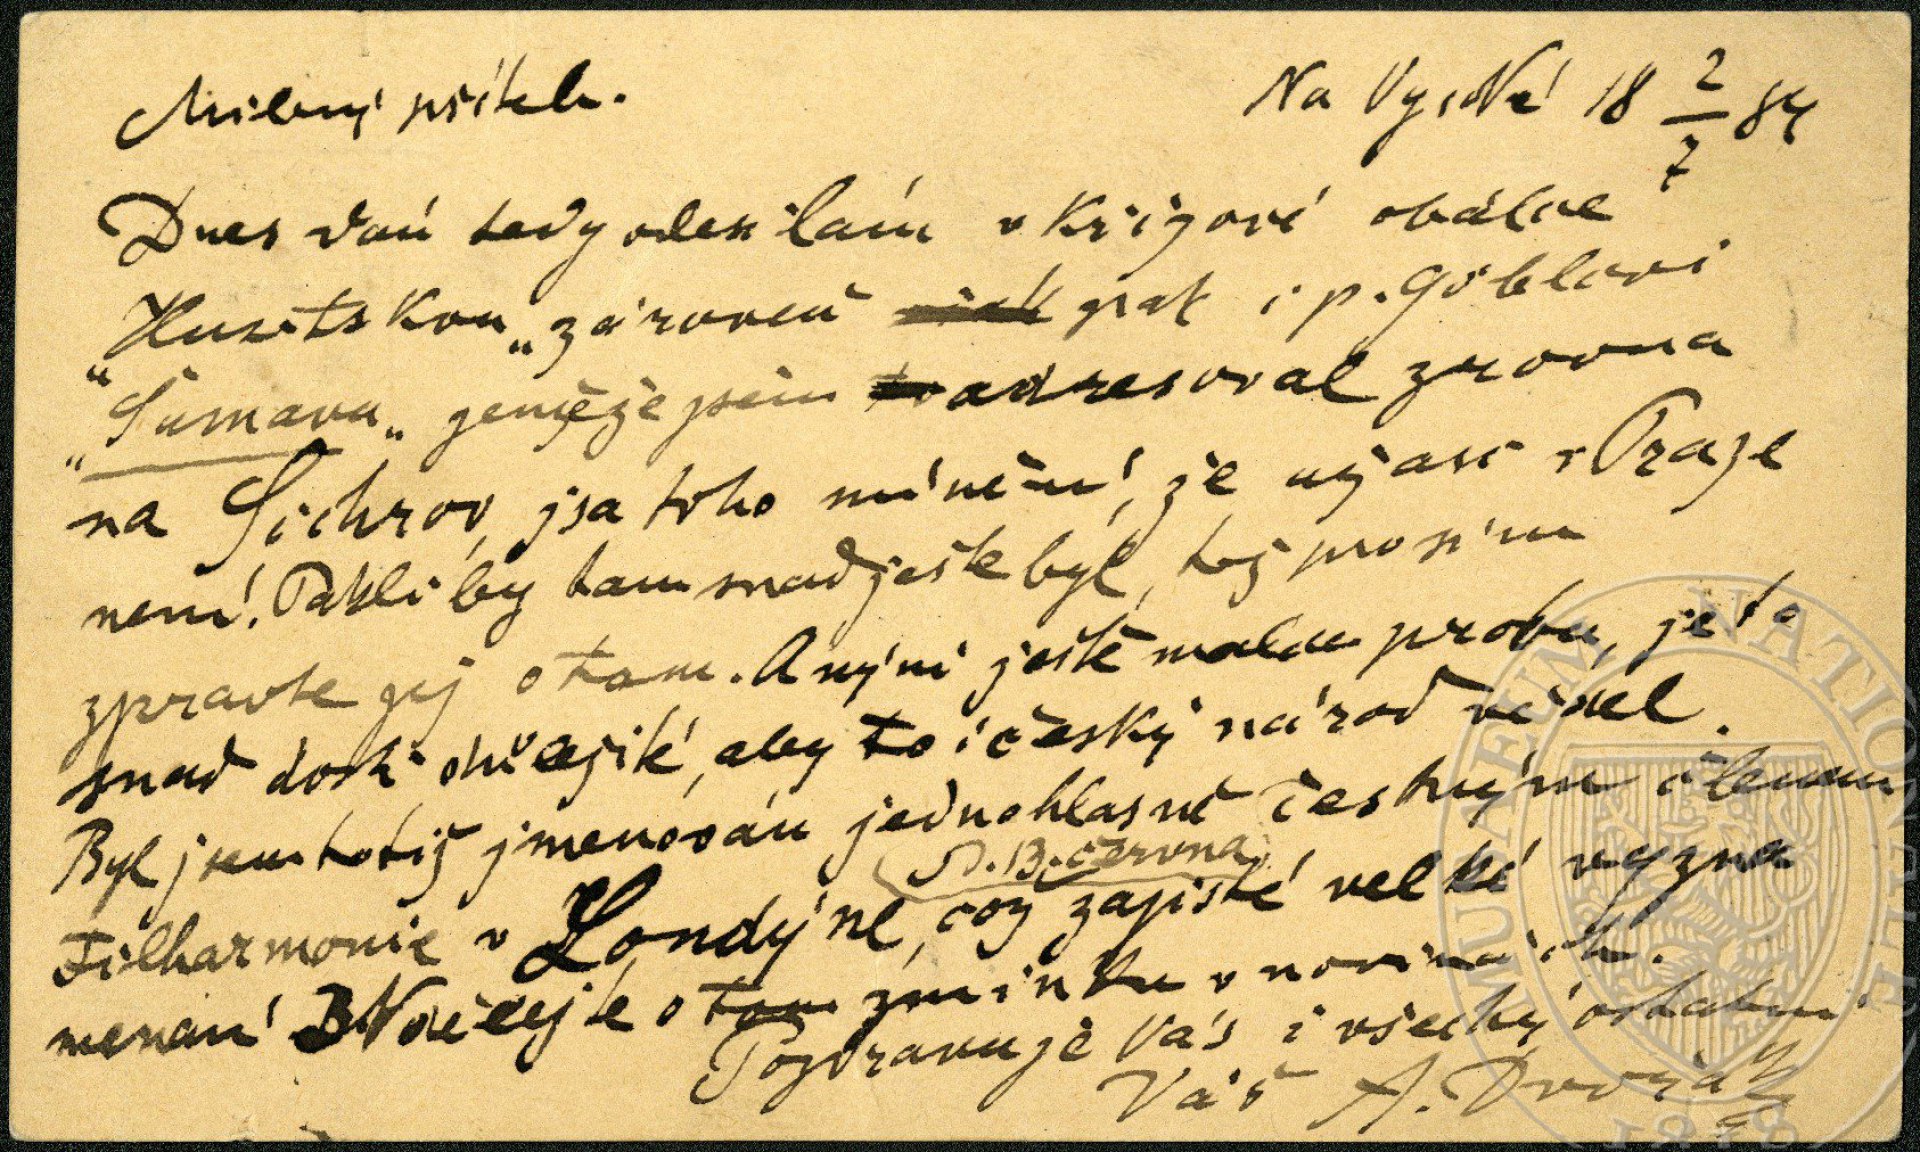 Milený příteli. Na Vysoké 18 2/7 84
Dnes daú tedy odesílám v Křížové obálce
"Husitskou" zároveň pak i p. Göblovi
"Šumavu" jemžežejsem adresoval zrovna
na Sichrov, jsa toho mínění, že as v Praze
není. Pakli by tam snad ještě byl, tož prosím
zpravte jej o tom. A nyní ještě malou prosbu, je to
snad dosti důležité, aby to i český národ věděl.
Byl jsem totiž jmenován jednohlasně čestným členem
D. 13. června
Filharmonie v Londýně, což zajisté velké vyzna
menání Novičejte o tom zmínku v novinách.
Pozdravuje Vás i všecky ostatní
Váš A. Dvořák
MUSAEUM NATIONALE
1818